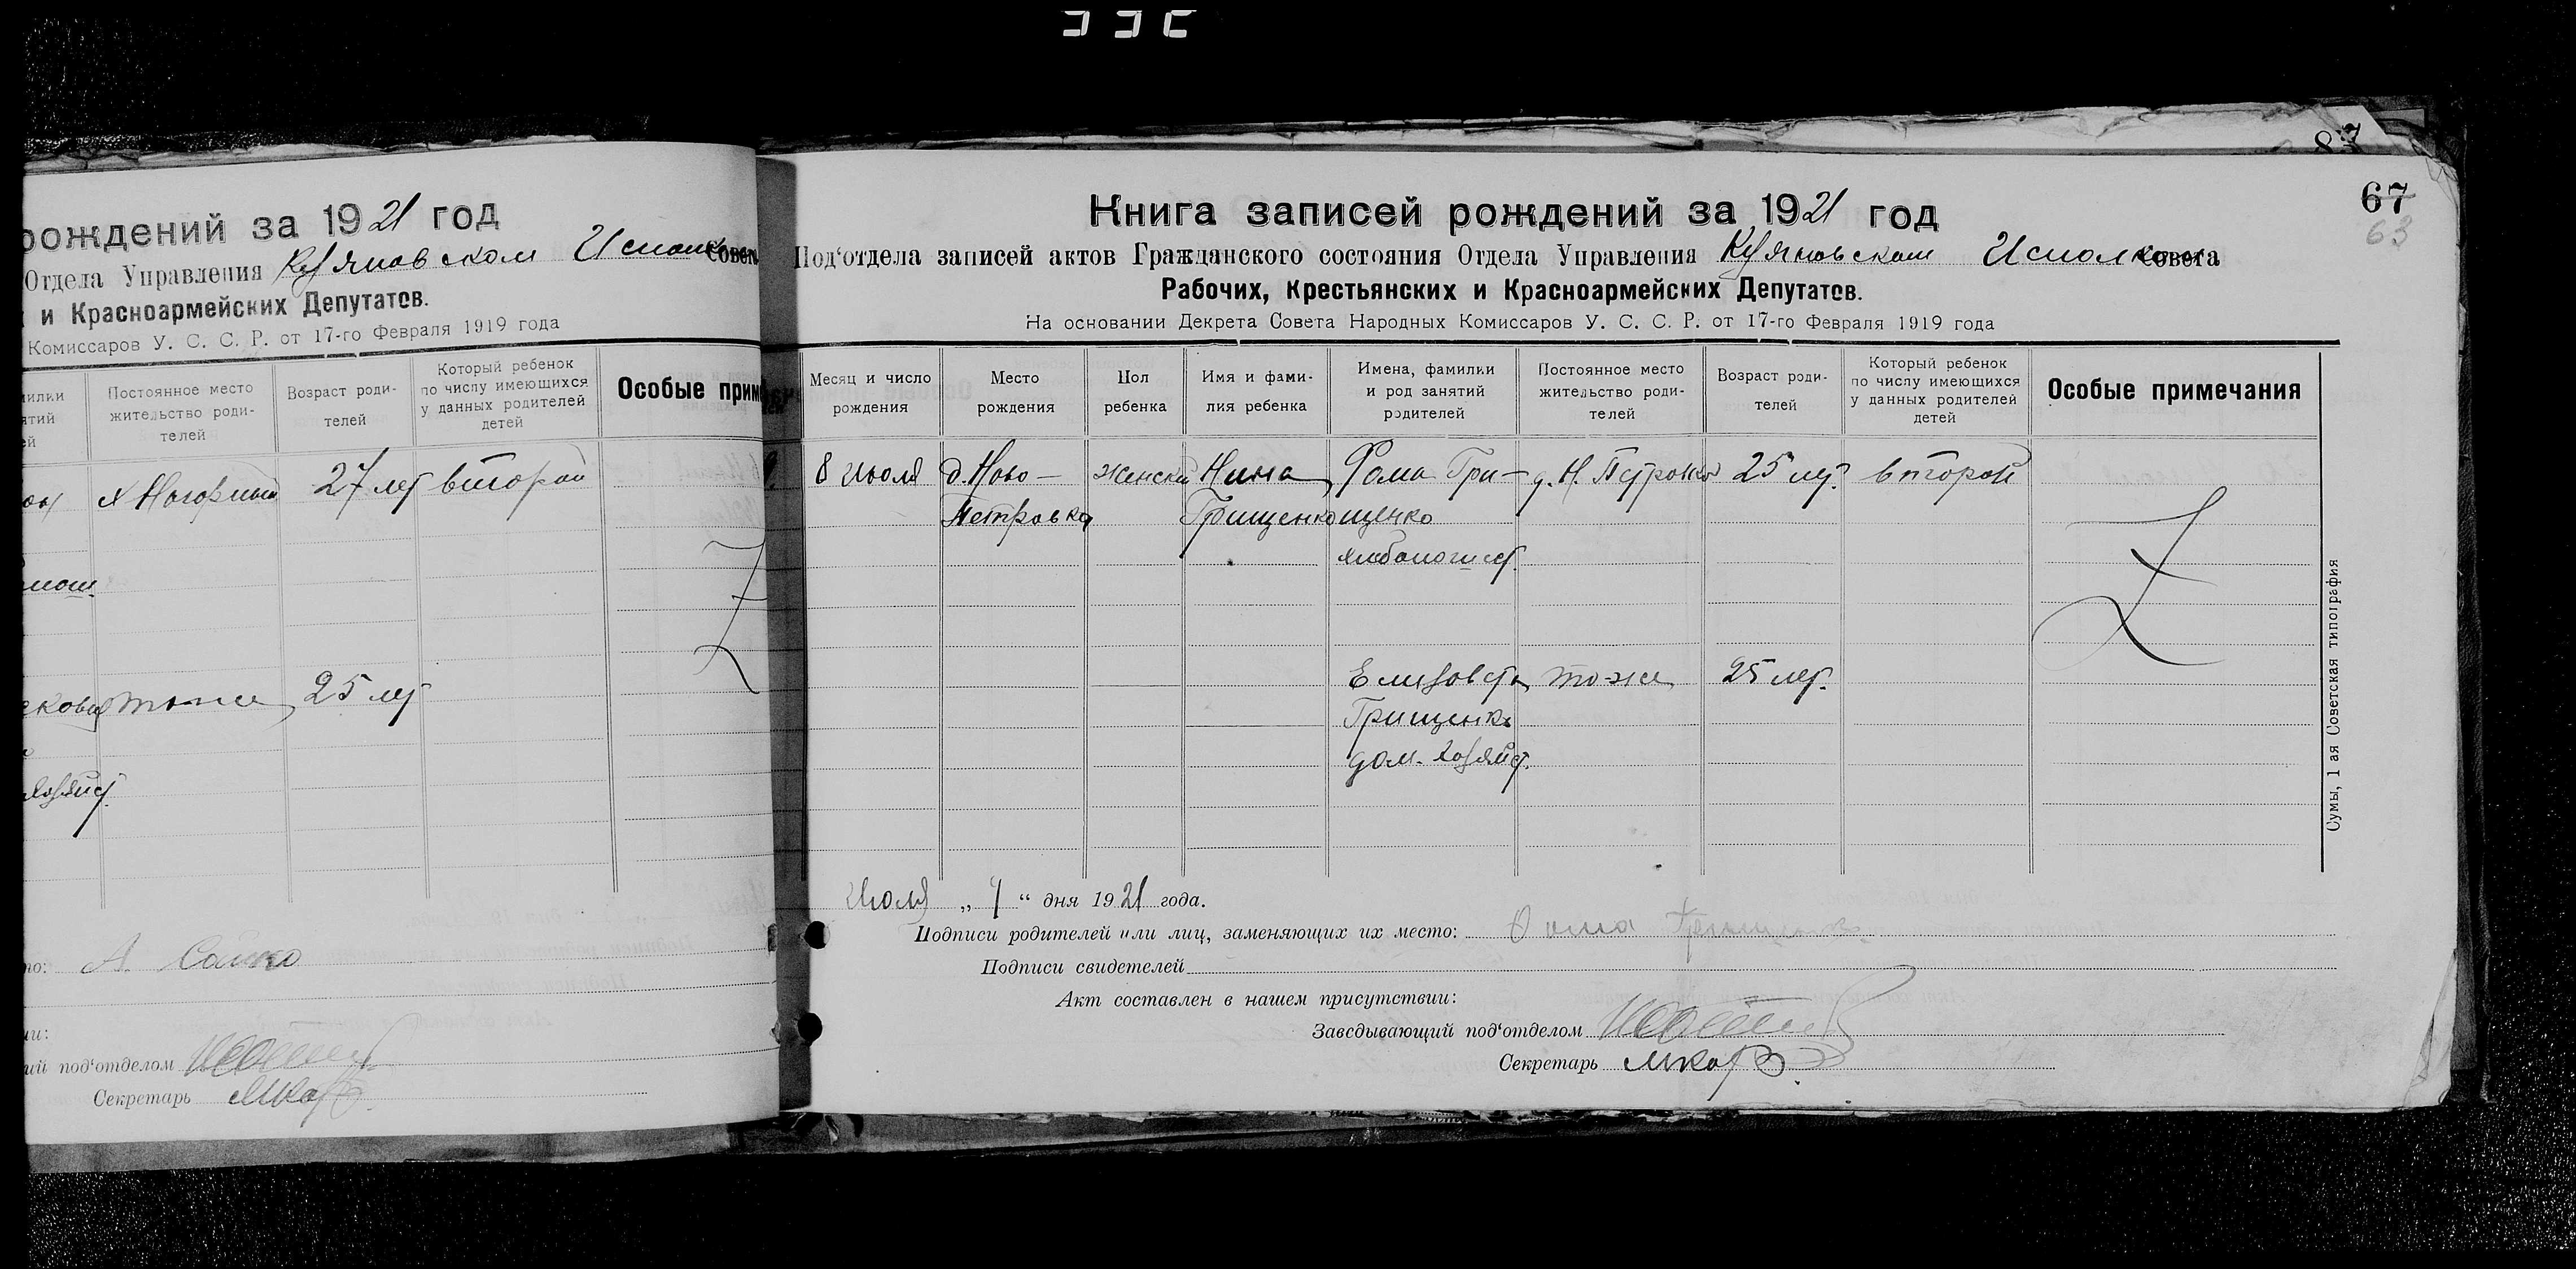 рождений за 1921 год
Отдела Управления
и Красноармейских Депутатов.
Комиссаров У. С. С. Р. от 17-го Февраля 1919 года
Постоянное место жительство роди-телей
Возраст роди-телей
Который ребенок по числу имеющихся у данных родителей детей
Особые прим
27 лет второй
тоже 25 лет
хозяйст.
А.
под‘отделом
Секретарь
87
67
63
Книга записей рождений за 1921 год
Под‘отдела записей актов Гражданского состояния Отдела Управления Исполком Совета
Рабочих, Крестьянских и Красноармейских Депутатов.
На основании Декрета Совета Народных Комиссаров У. С. С. Р. от 17-го Февраля 1919 года
Месяц и число рождения
Место рождения
Пол ребенка
Имя и фами-лия ребенка
Имена, фамилии и род занятий родителей
Постоянное место жительство роди-телей
Возраст роди-телей
Который ребенок по числу имеющихся у данных родителей детей
Особые примечания
8 июля д. Ново- женский Нина Фома Гри- д. Н. Петровка 25 лет. второй
Петровка Грищенко щенко
хлебопашест.
Елизавета тоже 25 лет.
Грищенко
дом. хозяйст.
Сумы, 1 ая Советская типография
Июля „ “ дня 1921 года.
Подписи родителей или лиц, заменяющих их место: Фома Грищенко
Подписи свидетелей
Акт составлен в нашем присутствии:
Заведывающий под‘отделом
Секретарь